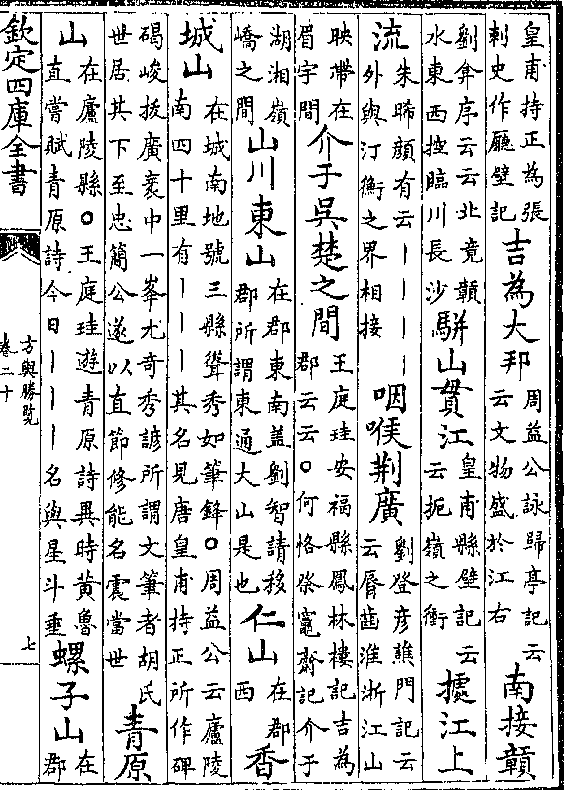 皇甫持正為張刺史作廳壁記吉為大邦周益公詠歸亭記云云文物盛於江右南接贛
劉弇序云云北竟贛水東西控臨川長沙駢山貫江皇甫縣壁記云云扼嶺之衝據江上
流朱晞顔有云丨丨丨丨外與汀衡之界相接咽喉荆廣劉登彦譙門記云云脣齒淮浙江山
映帶在眉宇間介于吳楚之間王庭珪安福縣鳳林樓記吉為郡云云○何恪祭竈齋記介于
湖湘嶺嶠之間山川東山在郡東南蓋劉智請移郡所謂東通大山是也仁山在郡西香
城山在城南地號三縣聳秀如筆鋒○周益公云廬陵南四十里有丨丨丨其名見唐皇甫持正所作碑
碣峻拔廣袤中一峯尤奇秀諺所謂文筆者胡氏世居其下至忠簡公遂以直節修能名震當世青原
山在廬陵縣○王庭珪遊青原詩異時黄魯直嘗賦青原詩今日丨丨丨名與星斗垂螺子山在郡
欽定四庫全書
方輿勝覽
卷二十
七